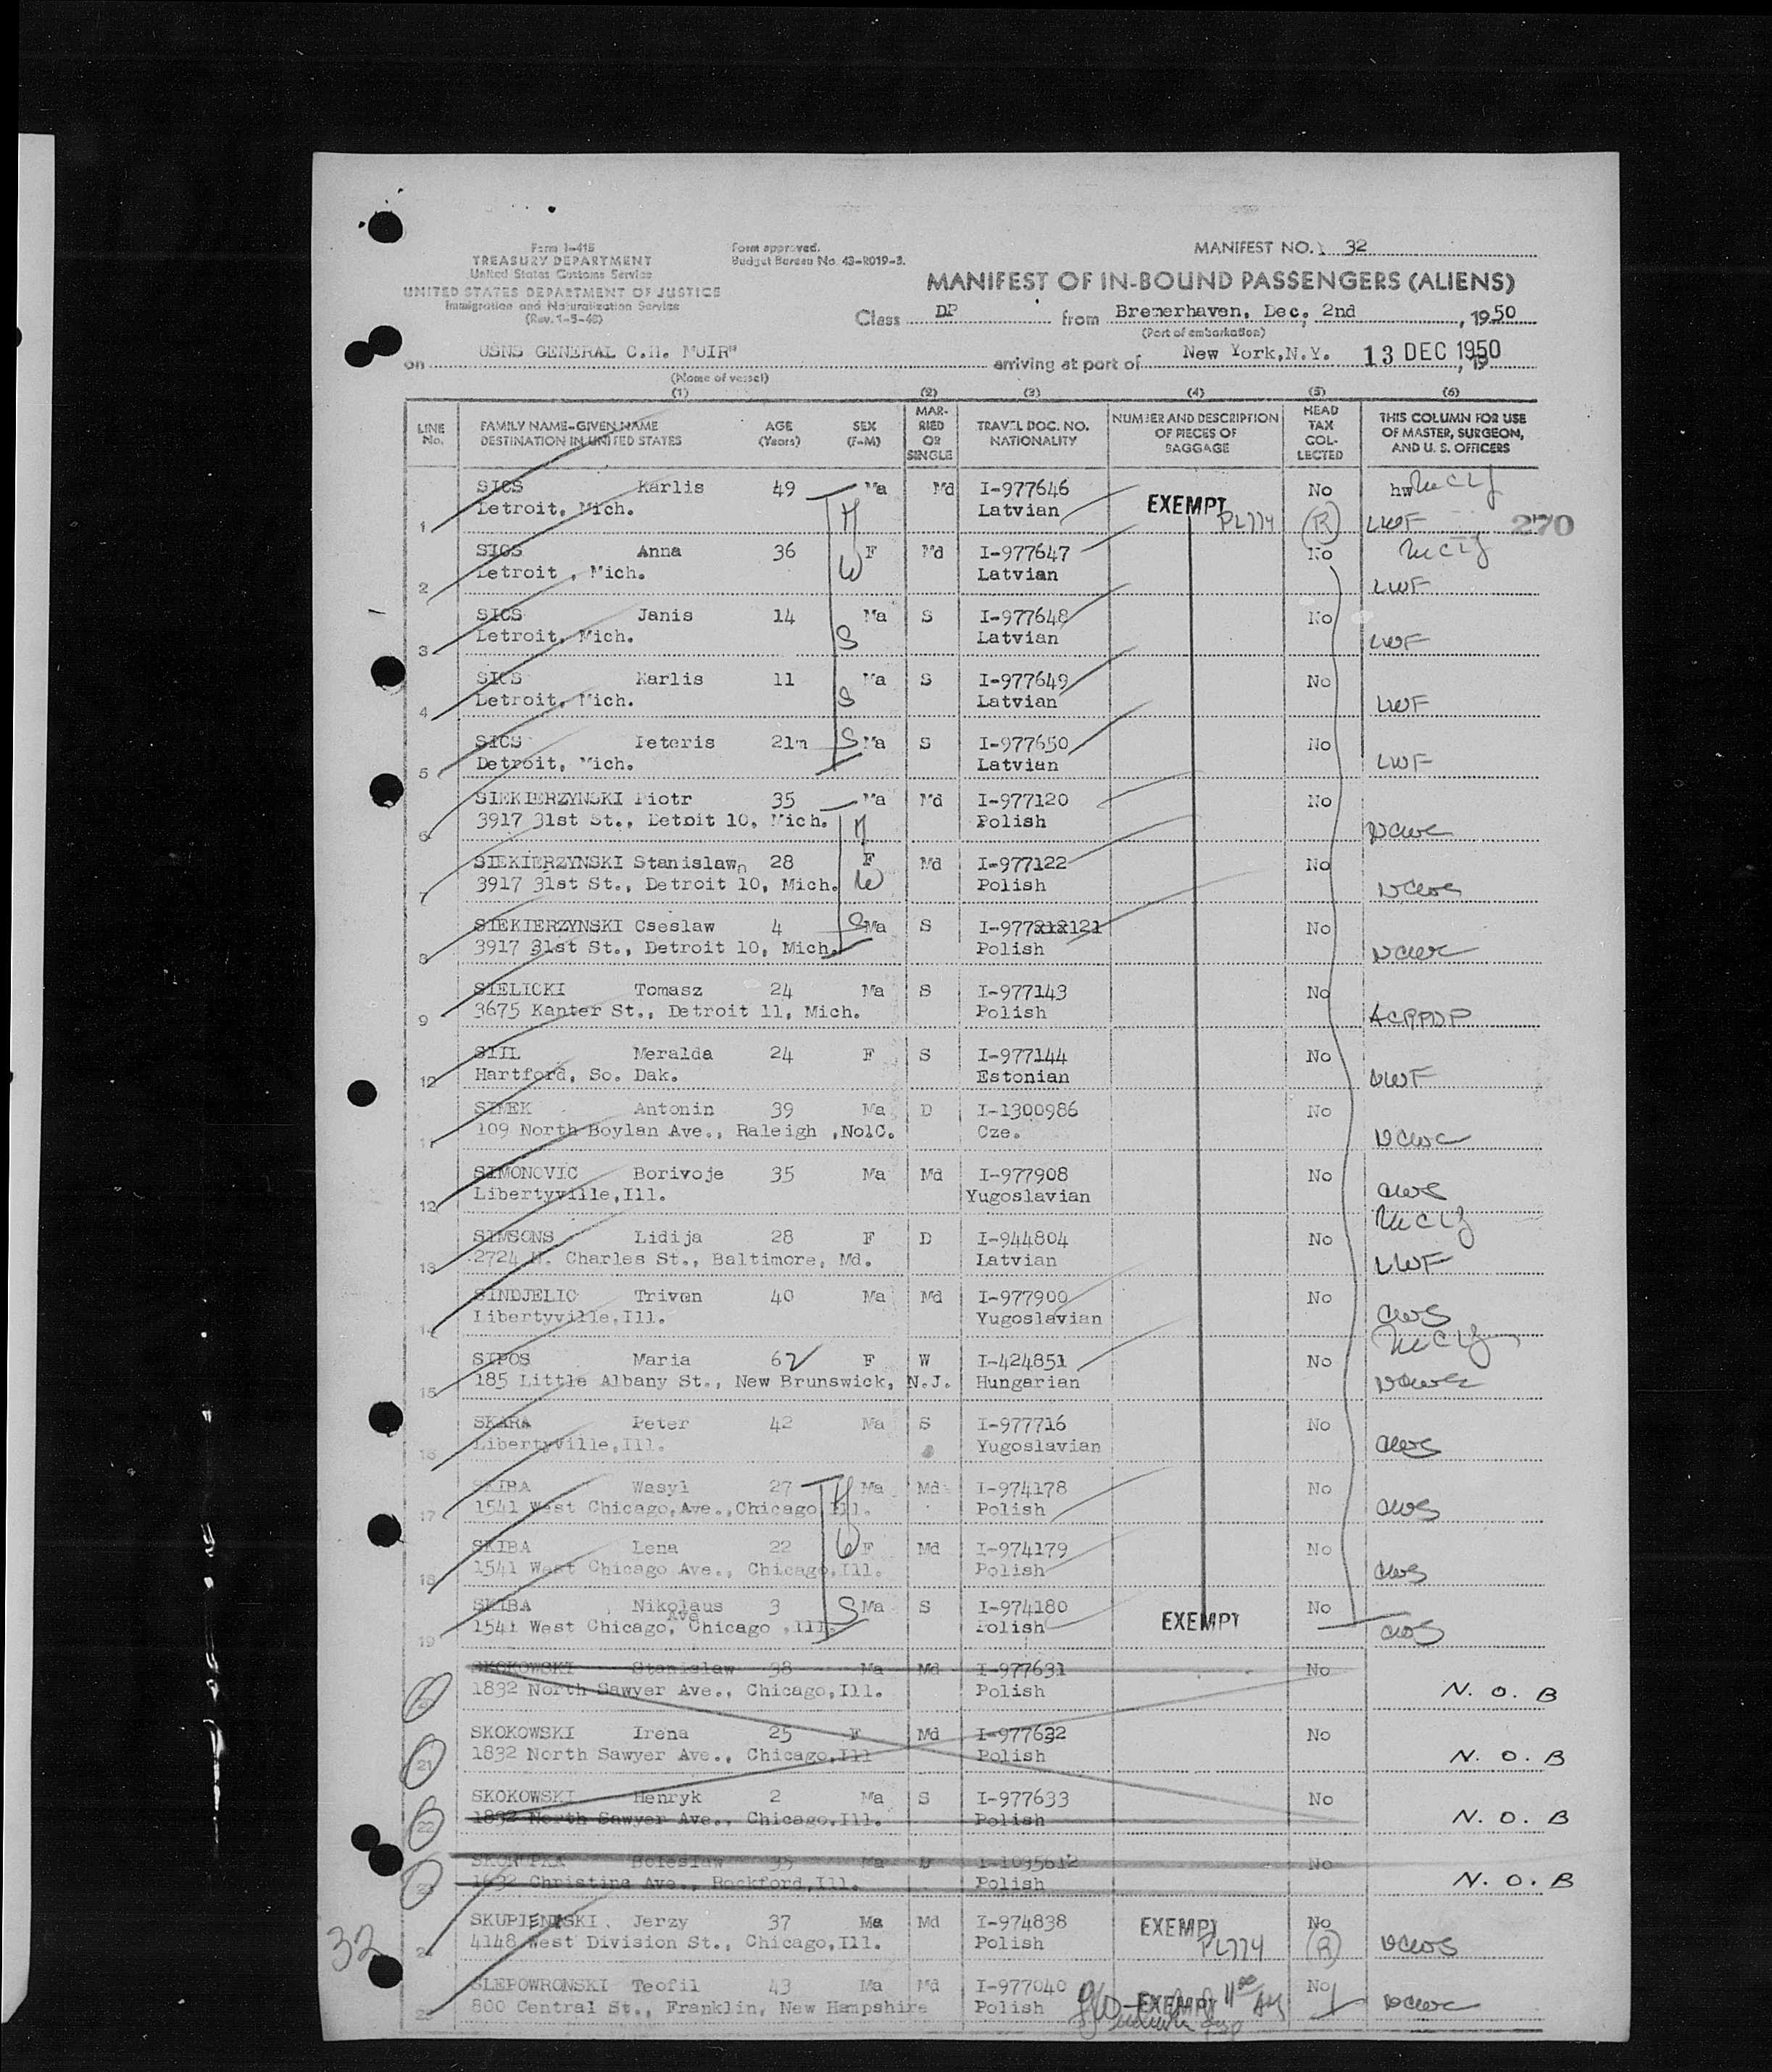 Form I-415
TREASURY DEPARTMENT
United States Customs Service
UNITED STATES DEPARTMENT OF JUSTICE
Immigration and Naturalization Service
(Rev. 1-5-48)
Form approved.
Budget Bureau No. 43-R019-3.
MANIFEST NO. 32
MANIFEST OF IN-BOUND PASSENGERS (ALIENS)
Class DP from Bremerhaven, Dec. 2nd, 1950
(Port of embarkation)
on USNS GENERAL C.H. MUIR" arriving at port of New York,N.Y. 13 DEC 1950, 19
(Name of vessel)
(1) (2) (3) (4) (5) (6)
LINE No. FAMILY NAME-GIVEN NAME DESTINATION IN UNITED STATES AGE (Years) SEX (F-M) MARRIED OR SINGLE TRAVEL DOC. NO. NATIONALITY NUMBER AND DESCRIPTION OF PIECES OF BAGGAGE HEAD TAX COLLECTED THIS COLUMN FOR USE OF MASTER, SURGEON, AND U. S. OFFICERS
SICS Karlis 49 Ma Md I-977646 EXEMPT No hw
1 Detroit, Mich. H Latvian PL774 R LWF 270
SICS Anna 36 F Md I-977647 No
2 Detroit, Mich. W Latvian LWF
SICS Janis 14 Ma S I-977648 No
3 Detroit, Mich. S Latvian LWF
SICS Karlis 11 Ma S I-977649 No
4 Detroit, Mich. S Latvian LWF
SICS Peteris 21m S Ma S I-977650 No
5 Detroit, Mich. Latvian LWF
SIEKIERZYNSKI Piotr 35 Ma Md I-977120 No
6 3917 31st St., Detroit 10, Mich. H Polish NCWC
SIEKIERZYNSKI Stanislawn 28 F Md I-977122 No
7 3917 31st St., Detroit 10, Mich. W Polish NCWC
SIEKIERZYNSKI Cseslaw 4 S Ma S I-977xxx121 No
8 3917 31st St., Detroit 10, Mich. Polish NCWC
SIELICKI Tomasz 24 Ma S I-977143 No
9 3675 Kanter St., Detroit 11, Mich. Polish ACRPDP
SIIL Meralda 24 F S I-977144 No
10 Hartford, So. Dak. Estonian LWF
SIMEK Antonin 39 Ma D I-1300986 No
11 109 North Boylan Ave., Raleigh ,NolC. Cze. NCWC
SIMONOVIC Borivoje 35 Ma Md I-977908 No
12 Libertyville,Ill. Yugoslavian CWS
SIMSONS Lidija 28 F D I-944804 No
13 2724 N. Charles St., Baltimore, Md. Latvian LWF
SINDJELIC Triven 40 Ma Md I-977900 No
14 Libertyville,Ill. Yugoslavian CWS
SIPOS Maria 62 F W I-424851 No
15 185 Little Albany St., New Brunswick, N.J. Hungarian NCWC
SKARA Peter 42 Ma S I-977716 No
16 Libertyville,Ill. Yugoslavian CWS
SKIBA Wasyl 27 H Ma Md I-974178 No
17 1541 West Chicago,Ave.,Chicago Ill. Polish CWS
SKIBA Lena 22 W F Md I-974179 No
18 1541 West Chicago Ave., Chicago,Ill. Polish CWS
SKIBA Nikolaus 3 S Ma S I-974180 EXEMPT No
19 1541 West Chicago, Ave Chicago ,Ill. Polish CWS
SKOKOWSKI Stanislaw 38 Ma Md I-977631 No
20 1832 North Sawyer Ave., Chicago,Ill. Polish N. O. B
SKOKOWSKI Irena 25 F Md I-977632 No
21 1832 North Sawyer Ave., Chicago,Ill Polish N. O. B
SKOKOWSKI Henryk 2 Ma S I-977633 No
22 1832 North Sawyer Ave., Chicago,Ill. Polish N. O. B
SKORUPKA Boleslaw 35 Ma I-1035612 No
23 1632 Christina Ave., Rockford,Ill. Polish N. O. B
SKUPIENSKI Jerzy 37 Ma Md I-974838 EXEMPT No
24 4148 West Division St., Chicago,Ill. Polish PL774 R NCWC
32
SLEPOWRONSKI Teofil 43 Ma Md I-977040 EXEMPT No
25 800 Central St., Franklin, New Hampshire Polish NCWC